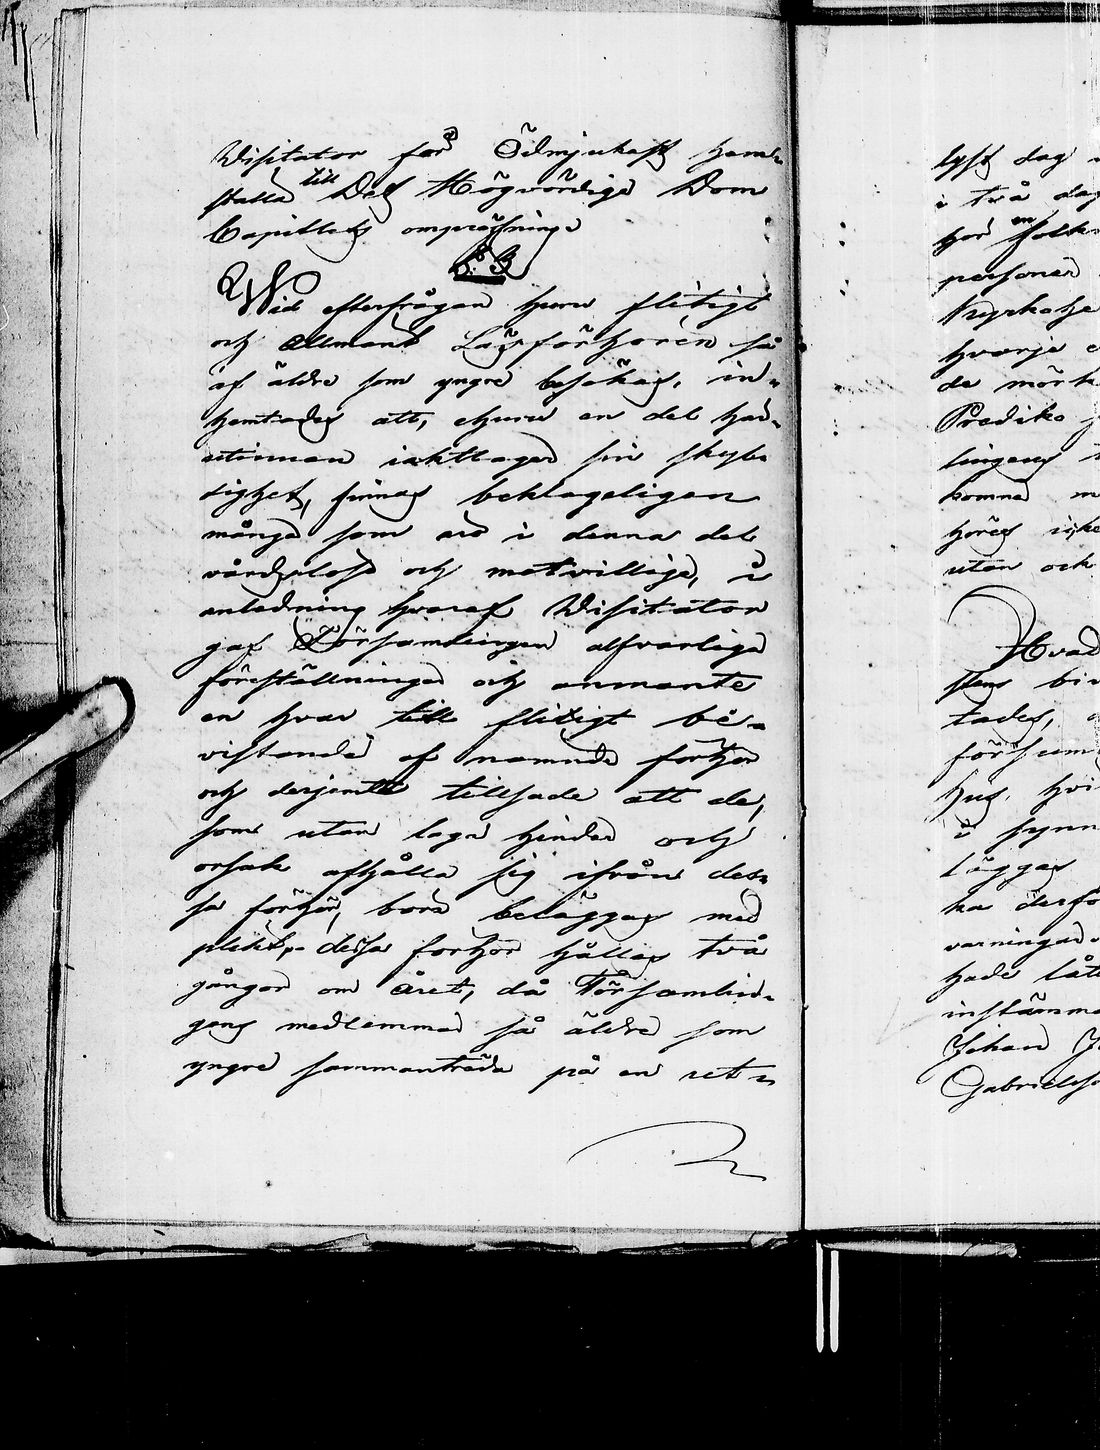 Visitator får Ödmjukast hem-
ställa till Det Högvördiga Dom
Capitlets ompröfning
§. 3
Wid efterfrågan huru flitigt
och allmänt Läsförhören så
af äldre som yngre besökas, in-
hemtades att, ehuru en del här-
utinnan iakttager sin skyl-
dighet, finnas beklageligen
många som äro i denna del
vårdslösa och motvillige, i
anledning hvaraf Visitator
gaf Församlingen alfvarliga
föreställningar och anmante
en hvar till flitigt be-
vistande af namnde förhör
och derjemte tillsade att de,
som utan laga hinder och
orsak afhålla sig ifrån des-
sa förhör, böra beläggas med
plikt, dessa förhör hållas två
gångor om året, då Församlin-
gens medlemmar så äldre som
yngre sammanträda på en ut-
lyst dag
i två dag
hör en folk
personer
Kyrkohe
hvarje
de mörk
Prediko
lingens
komma m
höres icke
utan och
Hvad
stens bi
tades,
försum
hus, hvi
i synn
läggas
ka derfö
varningar
hade låt
instämma
Johan J
Gabriels